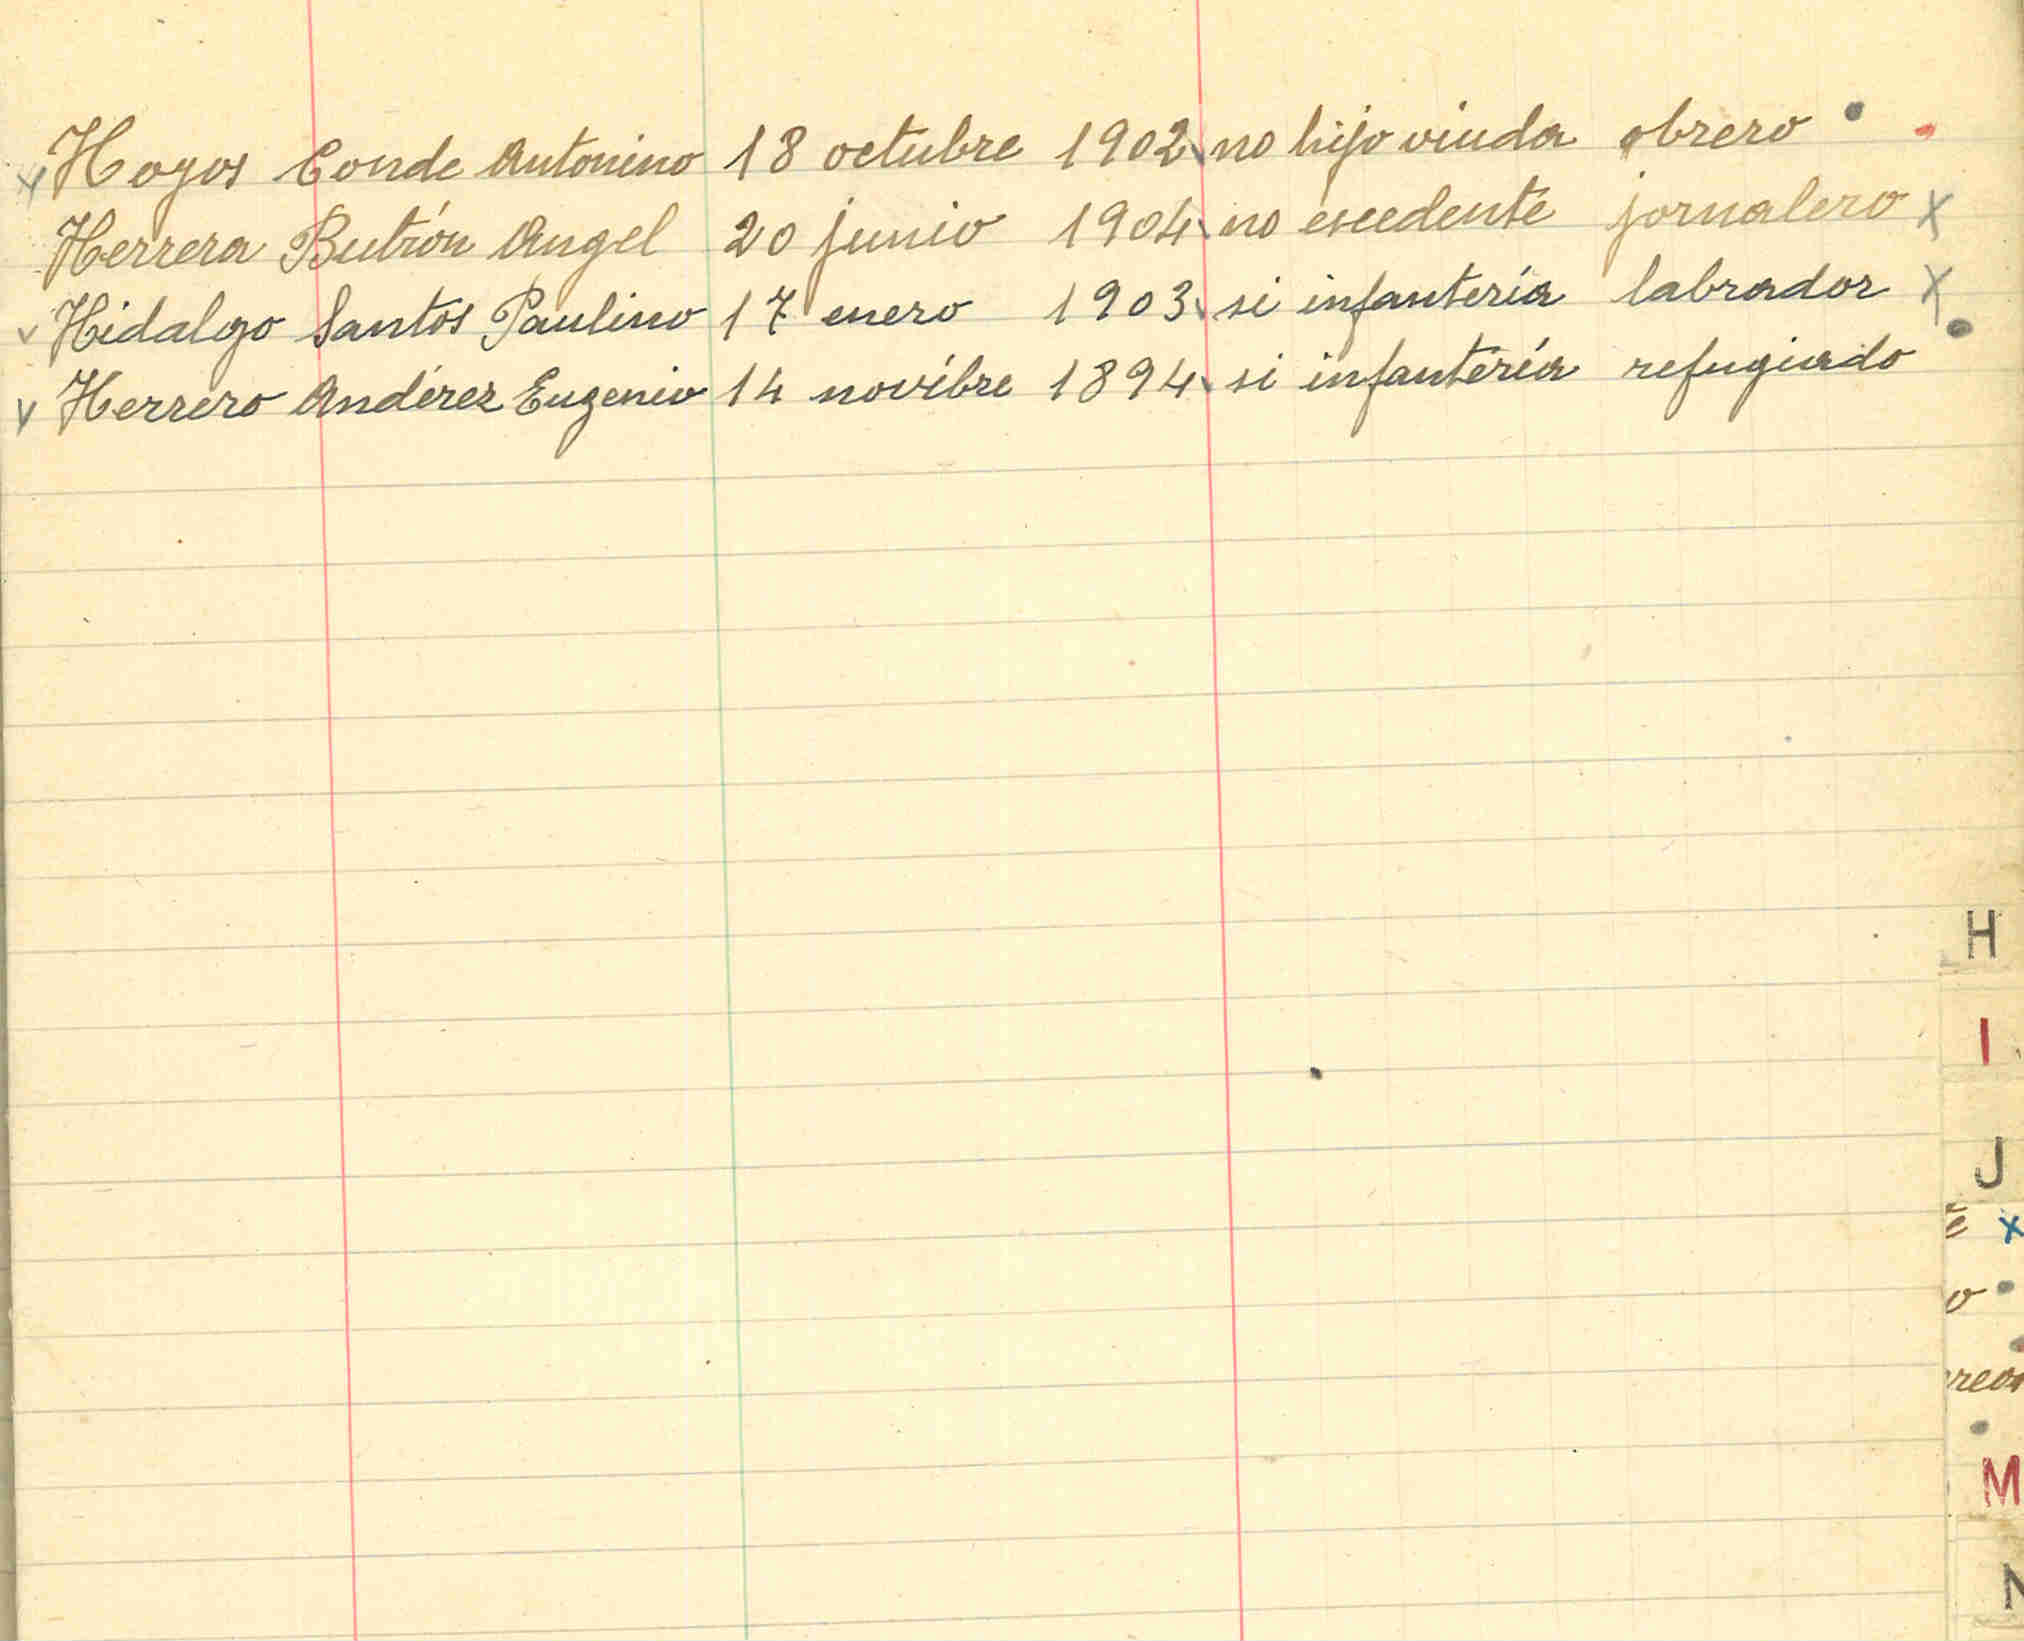 Hoyos Conde Antonino 18 octubre 1902 no hijo viuda obrero
Herrera Butrón Angel 20 junio 1904 no escedente jornalero x
Hidalgo Santos Paulino 17 enero 1903 si infantería labrador x
Herrero Andérez Eugenio 14 novibre 1894 si infantería refugiado
H
I
J
x
o
M
N